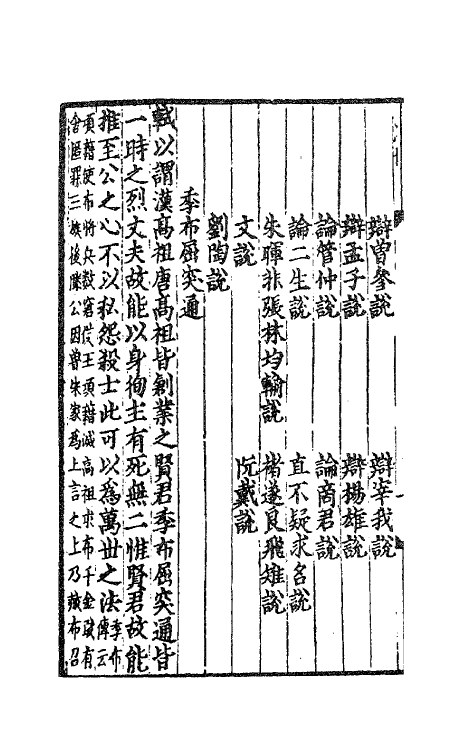 辯曾參說　辯宰我說
辯孟子說　辯楊雄說
論管仲說　論商君說
論二生說　直不疑求名說
朱暉非張林均輸說　褚遂良飛雉說
文說　阮戴說
劉陶說
季布屈突通
軾以謂漢高祖唐高祖皆創業之賢君季布屈突通皆
一時之烈丈夫故能以身徇主有死無二惟賢君故能
推至公之心不以私怨殺士此可以為萬世之法季布傳云
項藉使布將兵數窘王項藉滅高祖求布千金敢有
舍匿罪三族後滕公因魯朱家為上言之上乃赦布召